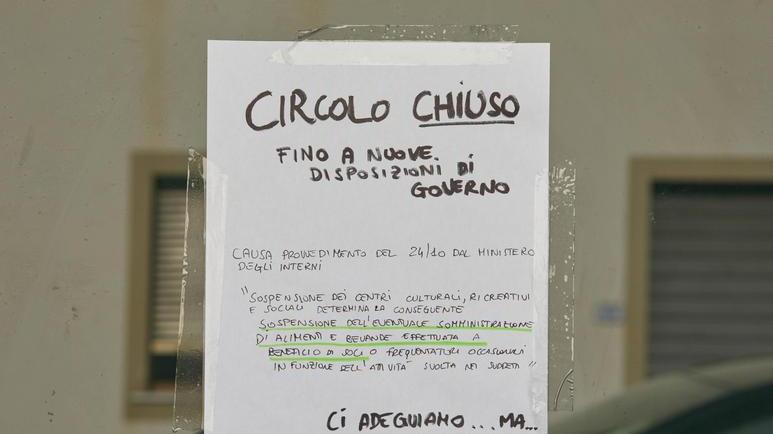 CIRCOLO CHIUSO
FINO A NUOVE.
DISPOSIZIONI DI
GOVERNO
CAUSA PROVVEDIMENTO DEL 24/10 DAL MINISTERO
DEGLI INTERNI
"SOSPENSIONE DEI CENTRI CULTURALI, RICREATIVI
E SOCIALI DETERMINA LA CONSEGUENTE
SOSPENSIONE DELL'EVENTUALE SOMMINISTRAZIONE
DI ALIMENTI E BEVANDE EFFETTUATA A
BENEFICIO DI SOCI O FREQUENTATORI OCCASIONALI
IN FUNZIONE DELL'ATTIVITÀ SVOLTA NEI SUDDETTI"
CI ADEGUIAMO... MA...